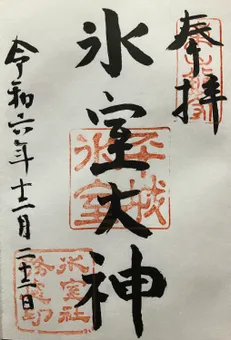 奉拝
氷室大神
平城
氷室
令和六年十二月二十二日
氷室社